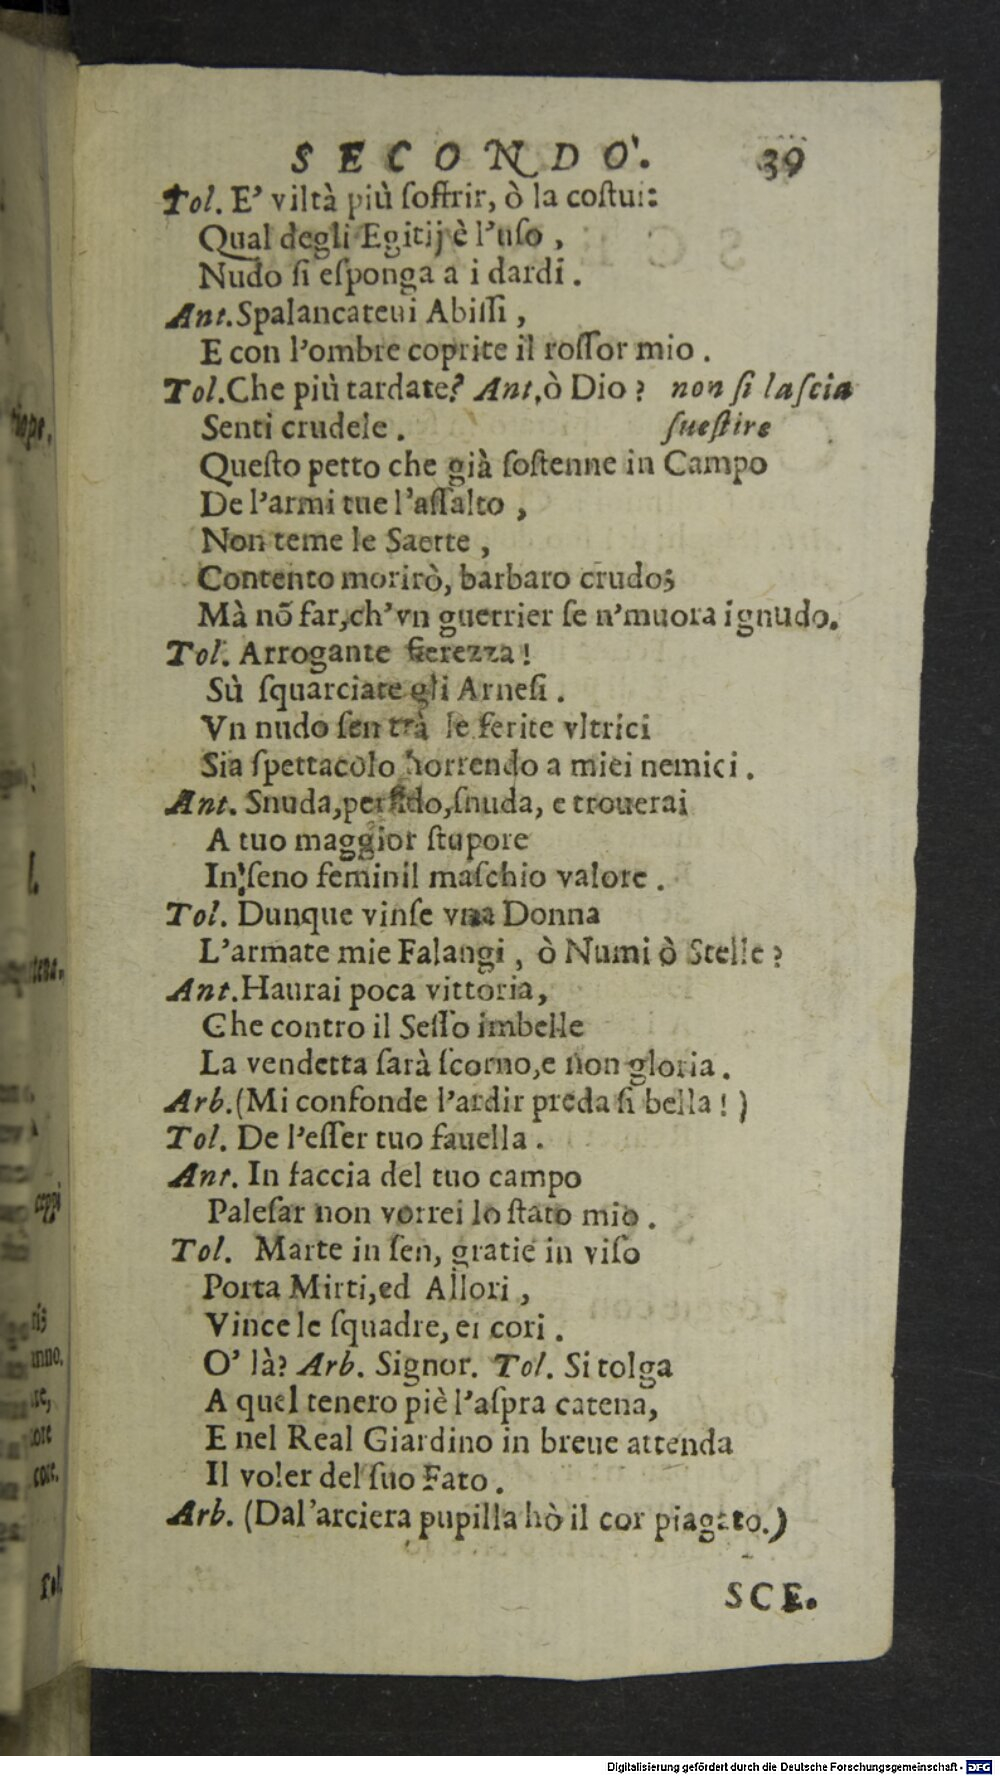 SECONDO. 39
Tol. E' viltà più ſoffrir, ò la coſtui:
Qual degli Egitij è l'uſo,
Nudo ſi eſponga a i dardi.
Ant. Spalancateui Abiſſi,
E con l'ombre coprite il roſſor mio.
Tol. Che più tardate? Ant. ò Dio? non ſi laſcia
Senti crudele. ſueſtire
Queſto petto che già ſoſtenne in Campo
De l'armi tue l'aſſalto,
Non teme le Saette,
Contento morirò, barbaro crudo;
Mà nõ far, ch'vn guerrier ſe n'muora ignudo.
Tol. Arrogante fierezza!
Sù ſquarciate gli Arneſi.
Vn nudo ſen trà le ferite vltrici
Sia ſpettacolo horrendo a miei nemici.
Ant. Snuda, perfido, ſnuda, e trouerai
A tuo maggior ſtupore
In ſeno feminil maſchio valore.
Tol. Dunque vinſe vna Donna
L'armate mie Falangi, ò Numi ò Stelle?
Ant. Haurai poca vittoria,
Che contro il Seſſo imbelle
La vendetta ſarà ſcorno, e non gloria.
Arb. (Mi confonde l'ardir preda ſi bella!)
Tol. De l'eſſer tuo fauella.
Ant. In faccia del tuo campo
Paleſar non vorrei lo ſtato mio.
Tol. Marte in ſen, gratie in viſo
Porta Mirti, ed Allori,
Vince le ſquadre, ei cori.
O' là? Arb. Signor. Tol. Si tolga
A quel tenero piè l'aſpra catena,
E nel Real Giardino in breue attenda
Il voler del ſuo Fato.
Arb. (Dal'arciera pupilla hò il cor piagato.)
SCE.
Digitalisierung gefördert durch die Deutsche Forschungsgemeinschaft - DFG